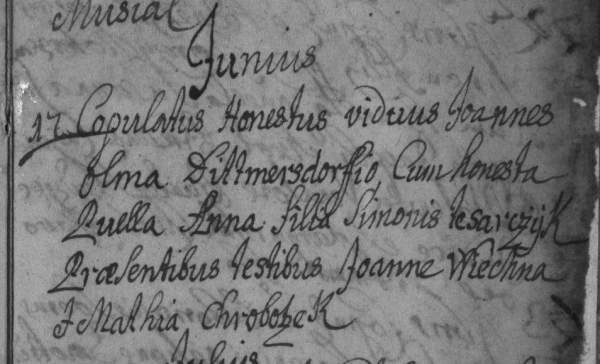 Musial
Junius
17 Copulatus Honestus viduus Joannes
Olma Dittmersdorffio, Cum honesta
Puella Anna filia Simonis tesarczyk
Præsentibus testibus Joanne Wiechna
& Mathia Chrobotzek
Julius